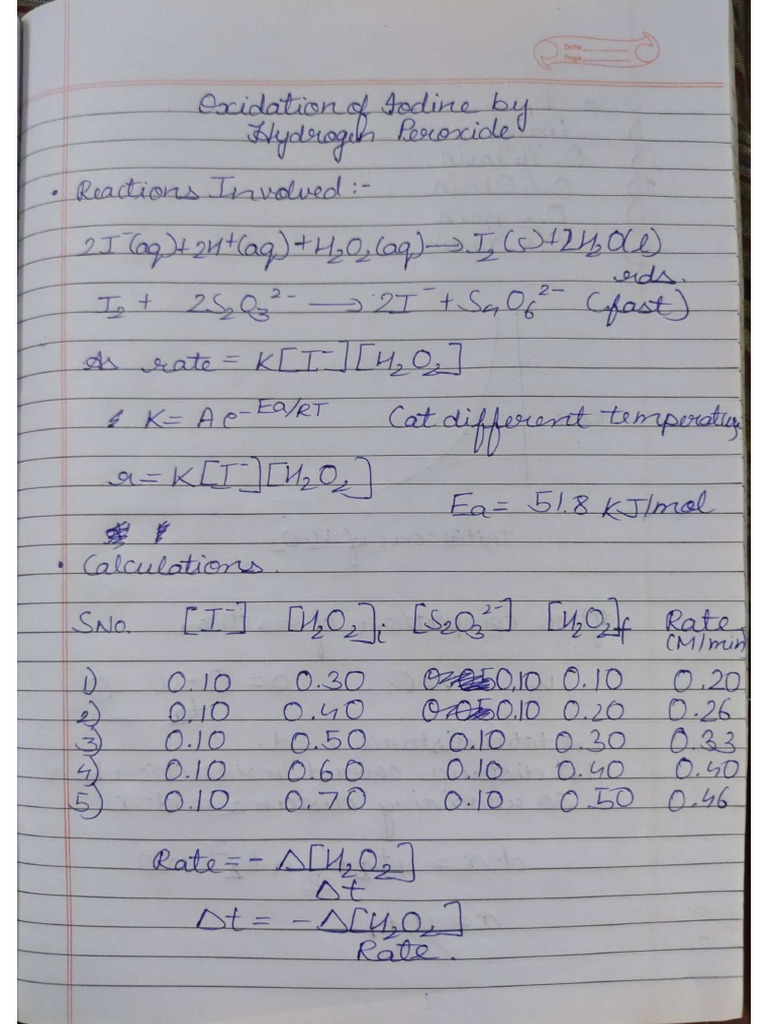 Date
Page
Oxidation of Iodine by
Hydrogen Peroxide
• Reactions Involved :-
2I⁻(aq)+2H⁺(aq)+H₂O₂(aq)→I₂(s)+2H₂O(l)
rds.
I₂ + 2S₂O₃²⁻ → 2I⁻ + S₄O₆²⁻ (fast)
As rate = K[I⁻][H₂O₂]
K = Ae^-Ea/RT (at different temperature
r = K[I⁻][H₂O₂]
Ea = 51.8 KJ/mol
• Calculations.
SNo. [I⁻] [H₂O₂]i [S₂O₃²⁻] [H₂O₂]f Rate
(M/min)
1) 0.10 0.30 0.10 0.10 0.20
2) 0.10 0.40 0.10 0.20 0.26
3) 0.10 0.50 0.10 0.30 0.33
4) 0.10 0.60 0.10 0.40 0.40
5) 0.10 0.70 0.10 0.50 0.46
Rate = - Δ[H₂O₂]
Δt
Δt = -Δ[H₂O₂]
Rate.